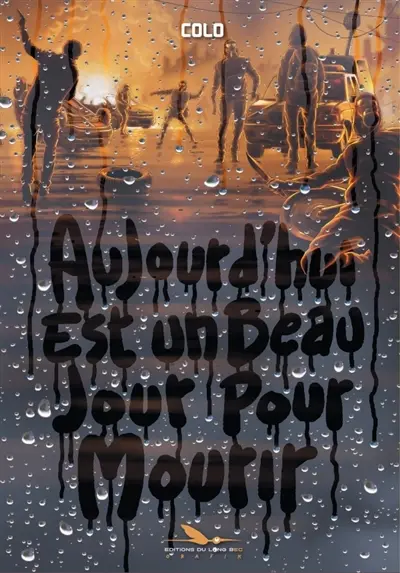 COLO
Aujourd'hui
Est un Beau
Jour Pour
Mourir
EDITIONS DU LONG BEC
GRAFIK